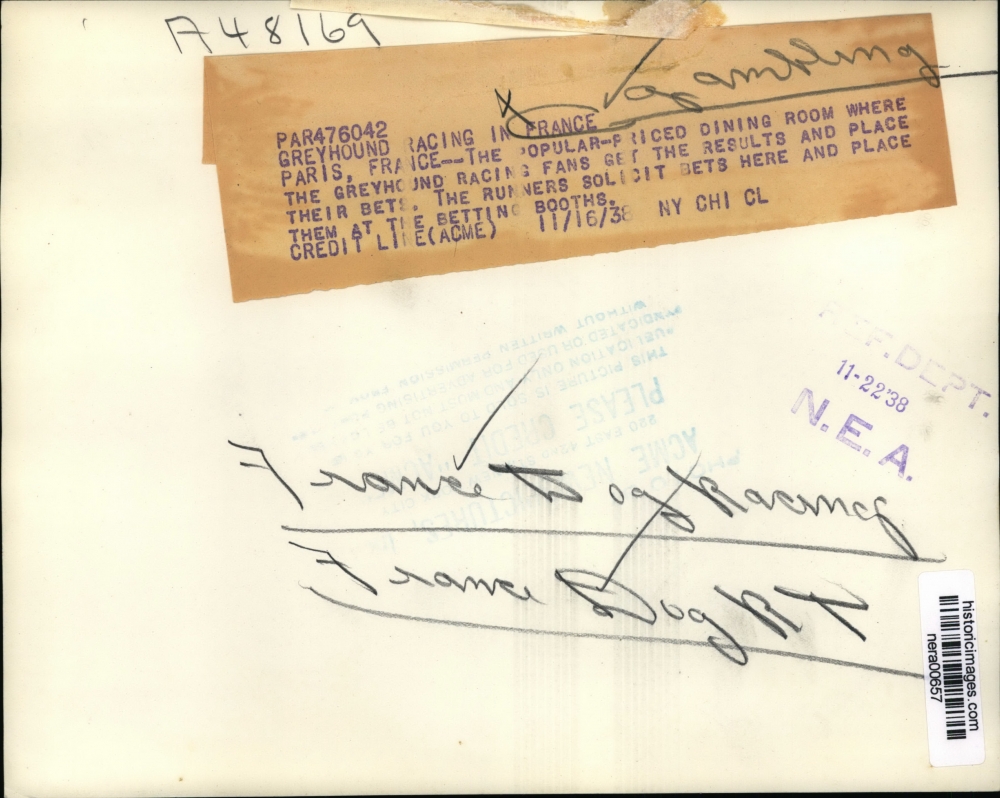 A48169
Gambling
PAR476042
GREYHOUND RACING IN FRANCE
PARIS, FRANCE--THE POPULAR-PRICED DINING ROOM WHERE
THE GREYHOUND RACING FANS GET THE RESULTS AND PLACE
THEIR BETS. THE RUNNERS SOLICIT BETS HERE AND PLACE
THEM AT THE BETTING BOOTHS.
CREDIT LINE(ACME) 11/16/38 NY CHI CL
REF. DEPT.
11-22'38
N.E.A.
WITHOUT WRITTEN PERMISSION FROM
SYNDICATED OR USED FOR ADVERTISING
PUBLICATION ONLY AND MUST NOT BE
THIS PICTURE IS SOLD TO YOU FOR
PLEASE CREDIT ACME
220 EAST 42ND
ACME NEWSPICTURES,
France Dog Racing
France Dog RT
historicimages.com
nera00657